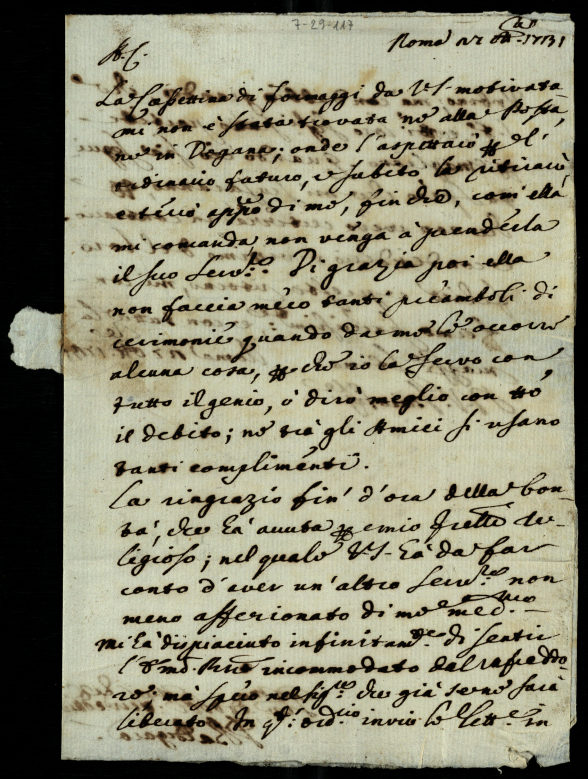 7-29-117
Roma 27 8bre 1731
A. C.
La Cassettina di formaggi da VS. motivata
mi non è stata trovata ne alla Posta,
ne in Dogana; onde l'aspettarò p l'
ordinario futuro, e subito la ritirarò,
e terrò app.so di me, fin che, com'ella
mi comanda non venga à prenderla
il suo Serv.re. Di grazia poi ella
non faccia meco tanti preamboli di
cerimonie quando da me le occorre
alcuna cosa, p che io la servo con
tutto il genio, ò dirò meglio con tto
il debito; ne trà gli Amici si usano
tanti complimenti.
La ringrazio fin' d'ora della bon-
tà, che hà avuta p il mio frello Re-
ligioso; nel quale VS. hà da far
conto d'aver un'altro Serv.re non
meno affezionato di me med.mo
Mi hà dispiaciuto infinitam.te di sentir
incommodato dal raffreddo-
re mà spero nel che già se ne sarà
liberato. In q.to ord.rio invio le lett.e in